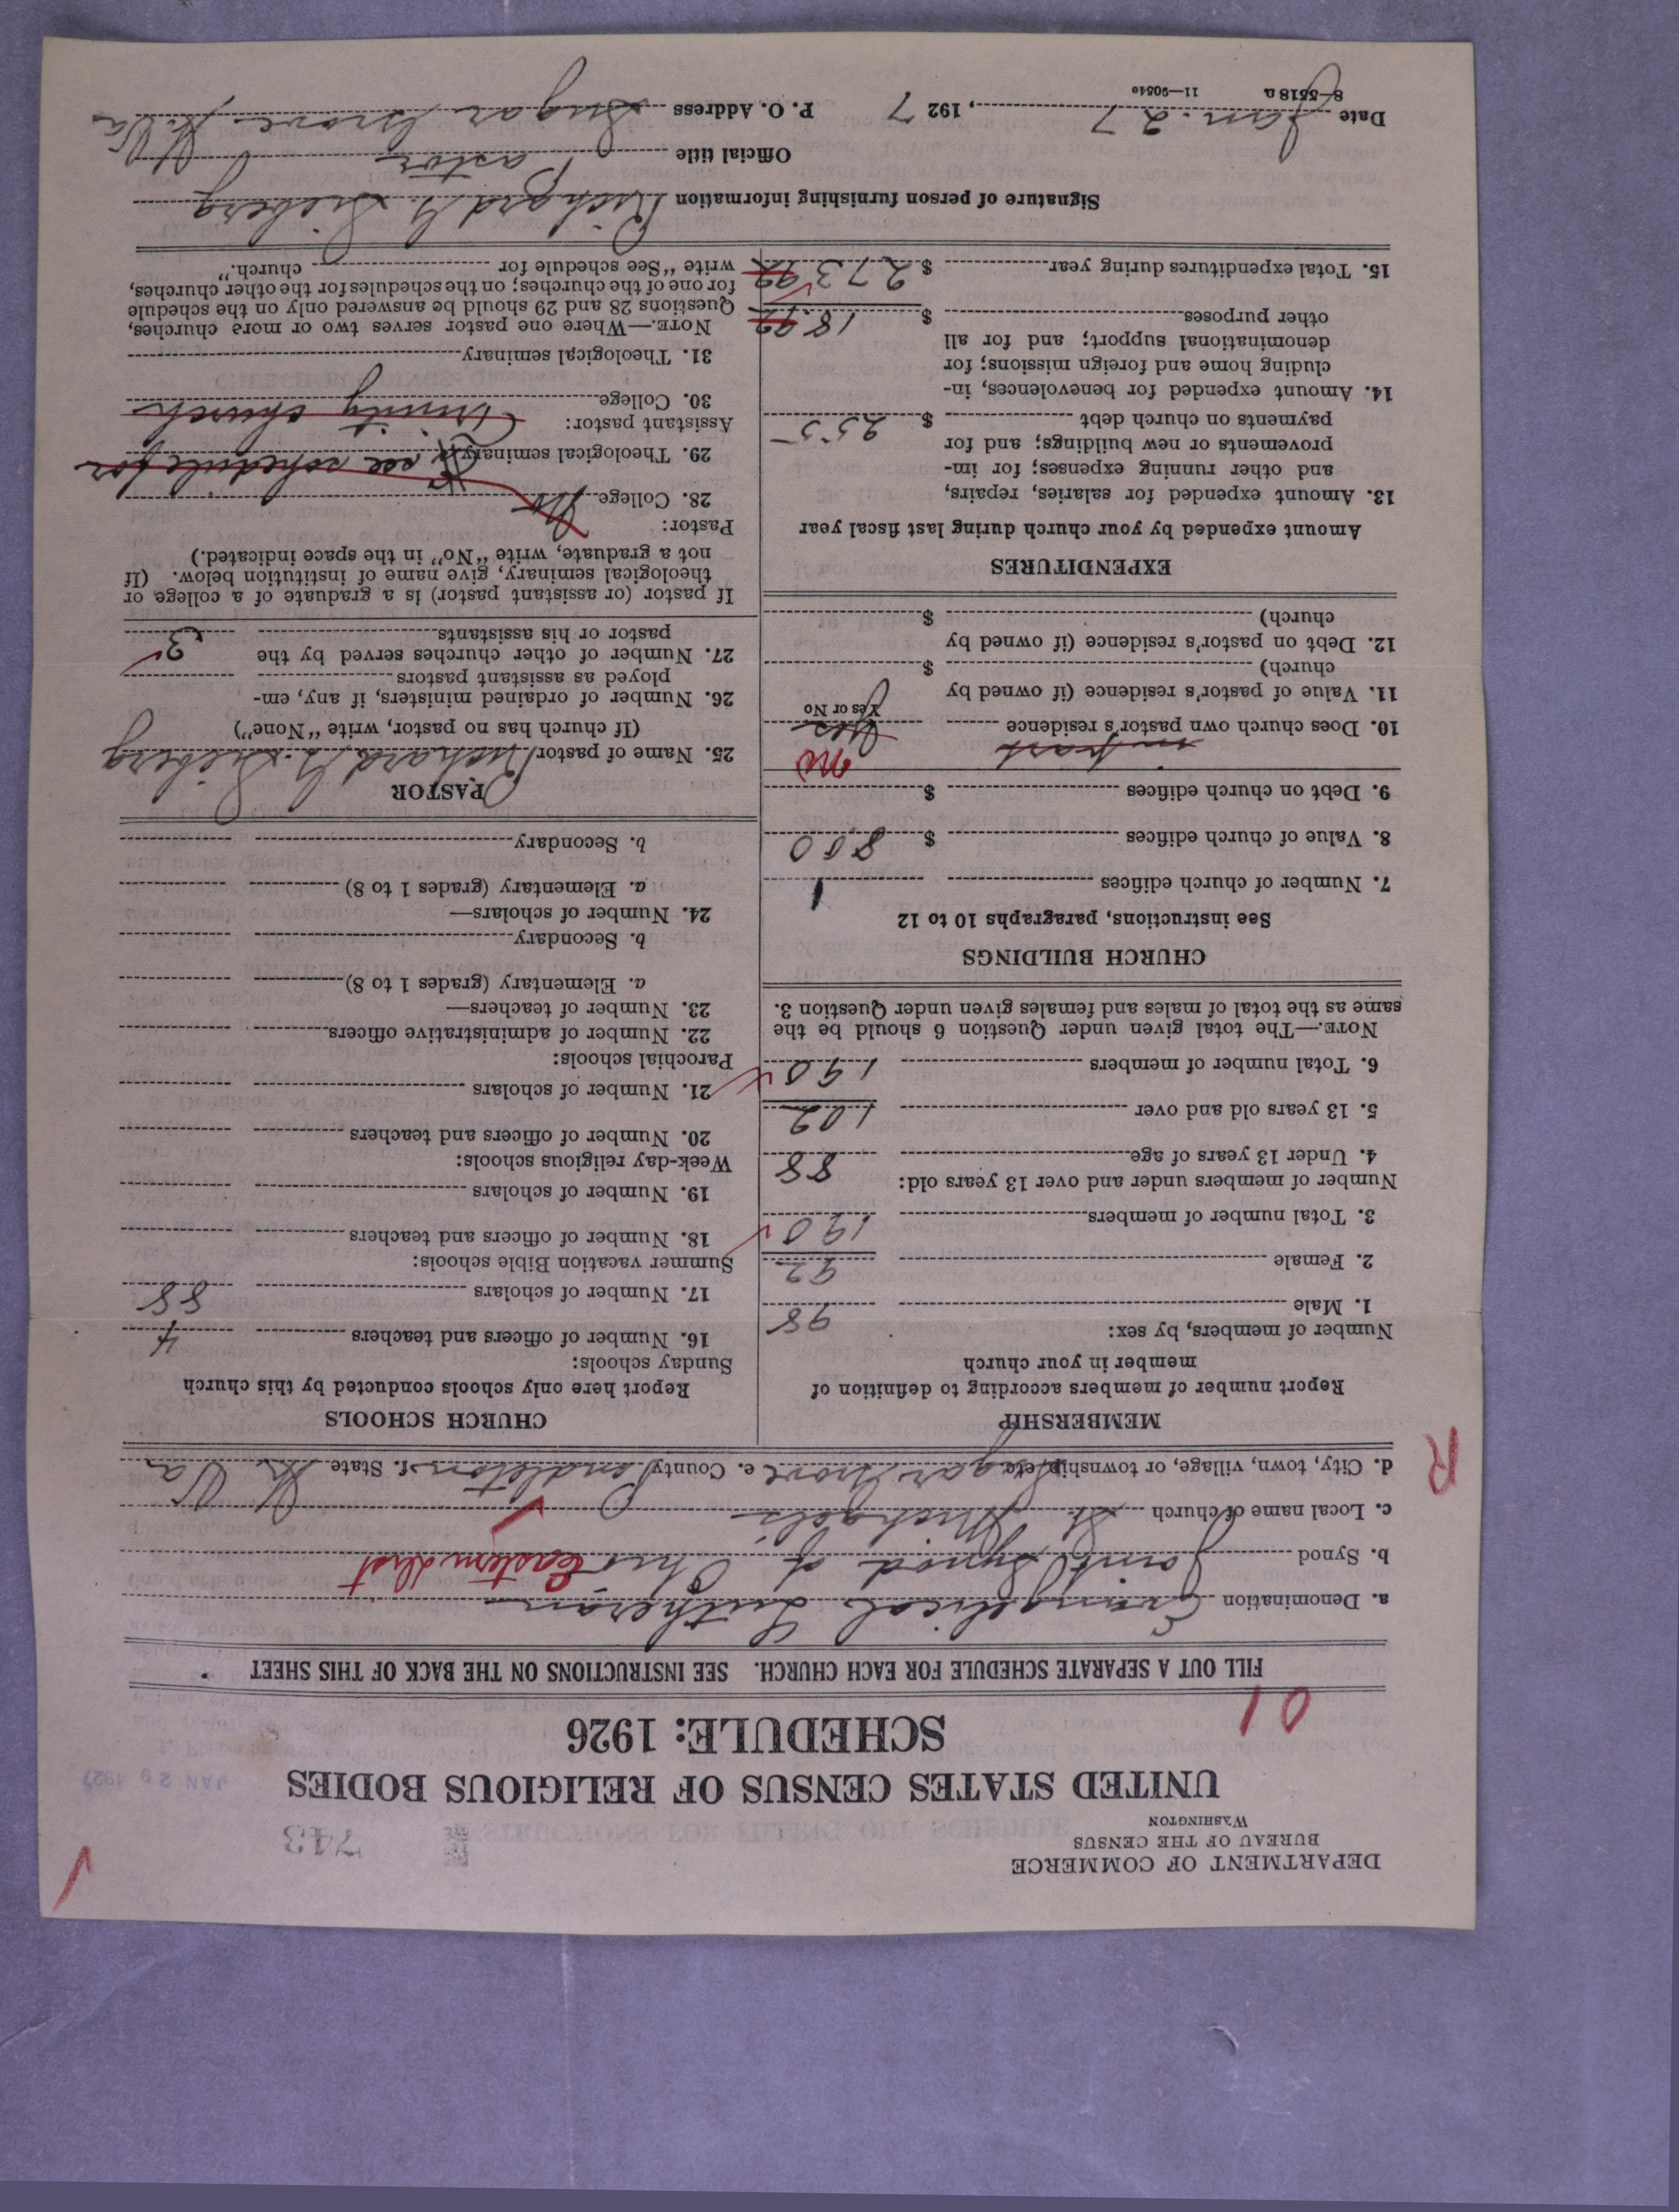 DEPARTMENT OF COMMERCE
BUREAU OF THE CENSUS
WASHINGTON
743
UNITED STATES CENSUS OF RELIGIOUS BODIES
JAN 29 1927
SCHEDULE: 1926
01
FILL OUT A SEPARATE SCHEDULE FOR EACH CHURCH. SEE INSTRUCTIONS ON THE BACK OF THIS SHEET
a. Denomination Evangelical Lutheran
b. Synod Joint Synod of Ohio Eastern Dist
c. Local name of church St. Michaels
d. City, town, village, or township, etc. Sugar Grove e. County Pendleton f. State W. Va
W Va
R
MEMBERSHIP
Report number of members according to definition of
member in your church
Number of members, by sex:
1. Male 98
2. Female 92
3. Total number of members 190
Number of members under and over 13 years old:
4. Under 13 years of age 88
5. 13 years old and over 102
6. Total number of members 190
NOTE.—The total given under Question 6 should be the
same as the total of males and females given under Question 3.
CHURCH BUILDINGS
See instructions, paragraphs 10 to 12
7. Number of church edifices 1
8. Value of church edifices $ 800
9. Debt on church edifices $
in part no
10. Does church own pastor's residence Yes
Yes or No
11. Value of pastor's residence (if owned by
church) $
12. Debt on pastor's residence (if owned by
church) $
EXPENDITURES
Amount expended by your church during last fiscal year
13. Amount expended for salaries, repairs,
and other running expenses; for im-
provements or new buildings; and for
payments on church debt $ 255
14. Amount expended for benevolences, in-
cluding home and foreign missions; for
denominational support; and for all
other purposes $ 18.92
15. Total expenditures during year $ 273.92
CHURCH SCHOOLS
Report here only schools conducted by this church
Sunday schools:
16. Number of officers and teachers 4
17. Number of scholars 88
Summer vacation Bible schools:
18. Number of officers and teachers
19. Number of scholars
Week-day religious schools:
20. Number of officers and teachers
21. Number of scholars
Parochial schools:
22. Number of administrative officers
23. Number of teachers—
a. Elementary (grades 1 to 8)
b. Secondary
24. Number of scholars—
a. Elementary (grades 1 to 8)
b. Secondary
PASTOR
25. Name of pastor Richard G. Sieberg
(If church has no pastor, write "None")
26. Number of ordained ministers, if any, em-
ployed as assistant pastors
27. Number of other churches served by the
pastor or his assistants 3
If pastor (or assistant pastor) is a graduate of a college or
theological seminary, give name of institution below. (If
not a graduate, write "No" in the space indicated.)
Pastor:
28. College No
29. Theological seminary see schedule for
Assistant pastor: Trinity church
30. College
31. Theological seminary
NOTE.—Where one pastor serves two or more churches,
Questions 28 and 29 should be answered only on the schedule
for one of the churches; on the schedules for the other churches,
write "See schedule for church."
Signature of person furnishing information Richard G. Sieberg
Official title Pastor
Date Jan. 27, 1927 P. O. Address Sugar Grove W. Va
8—5518 a 11—90540